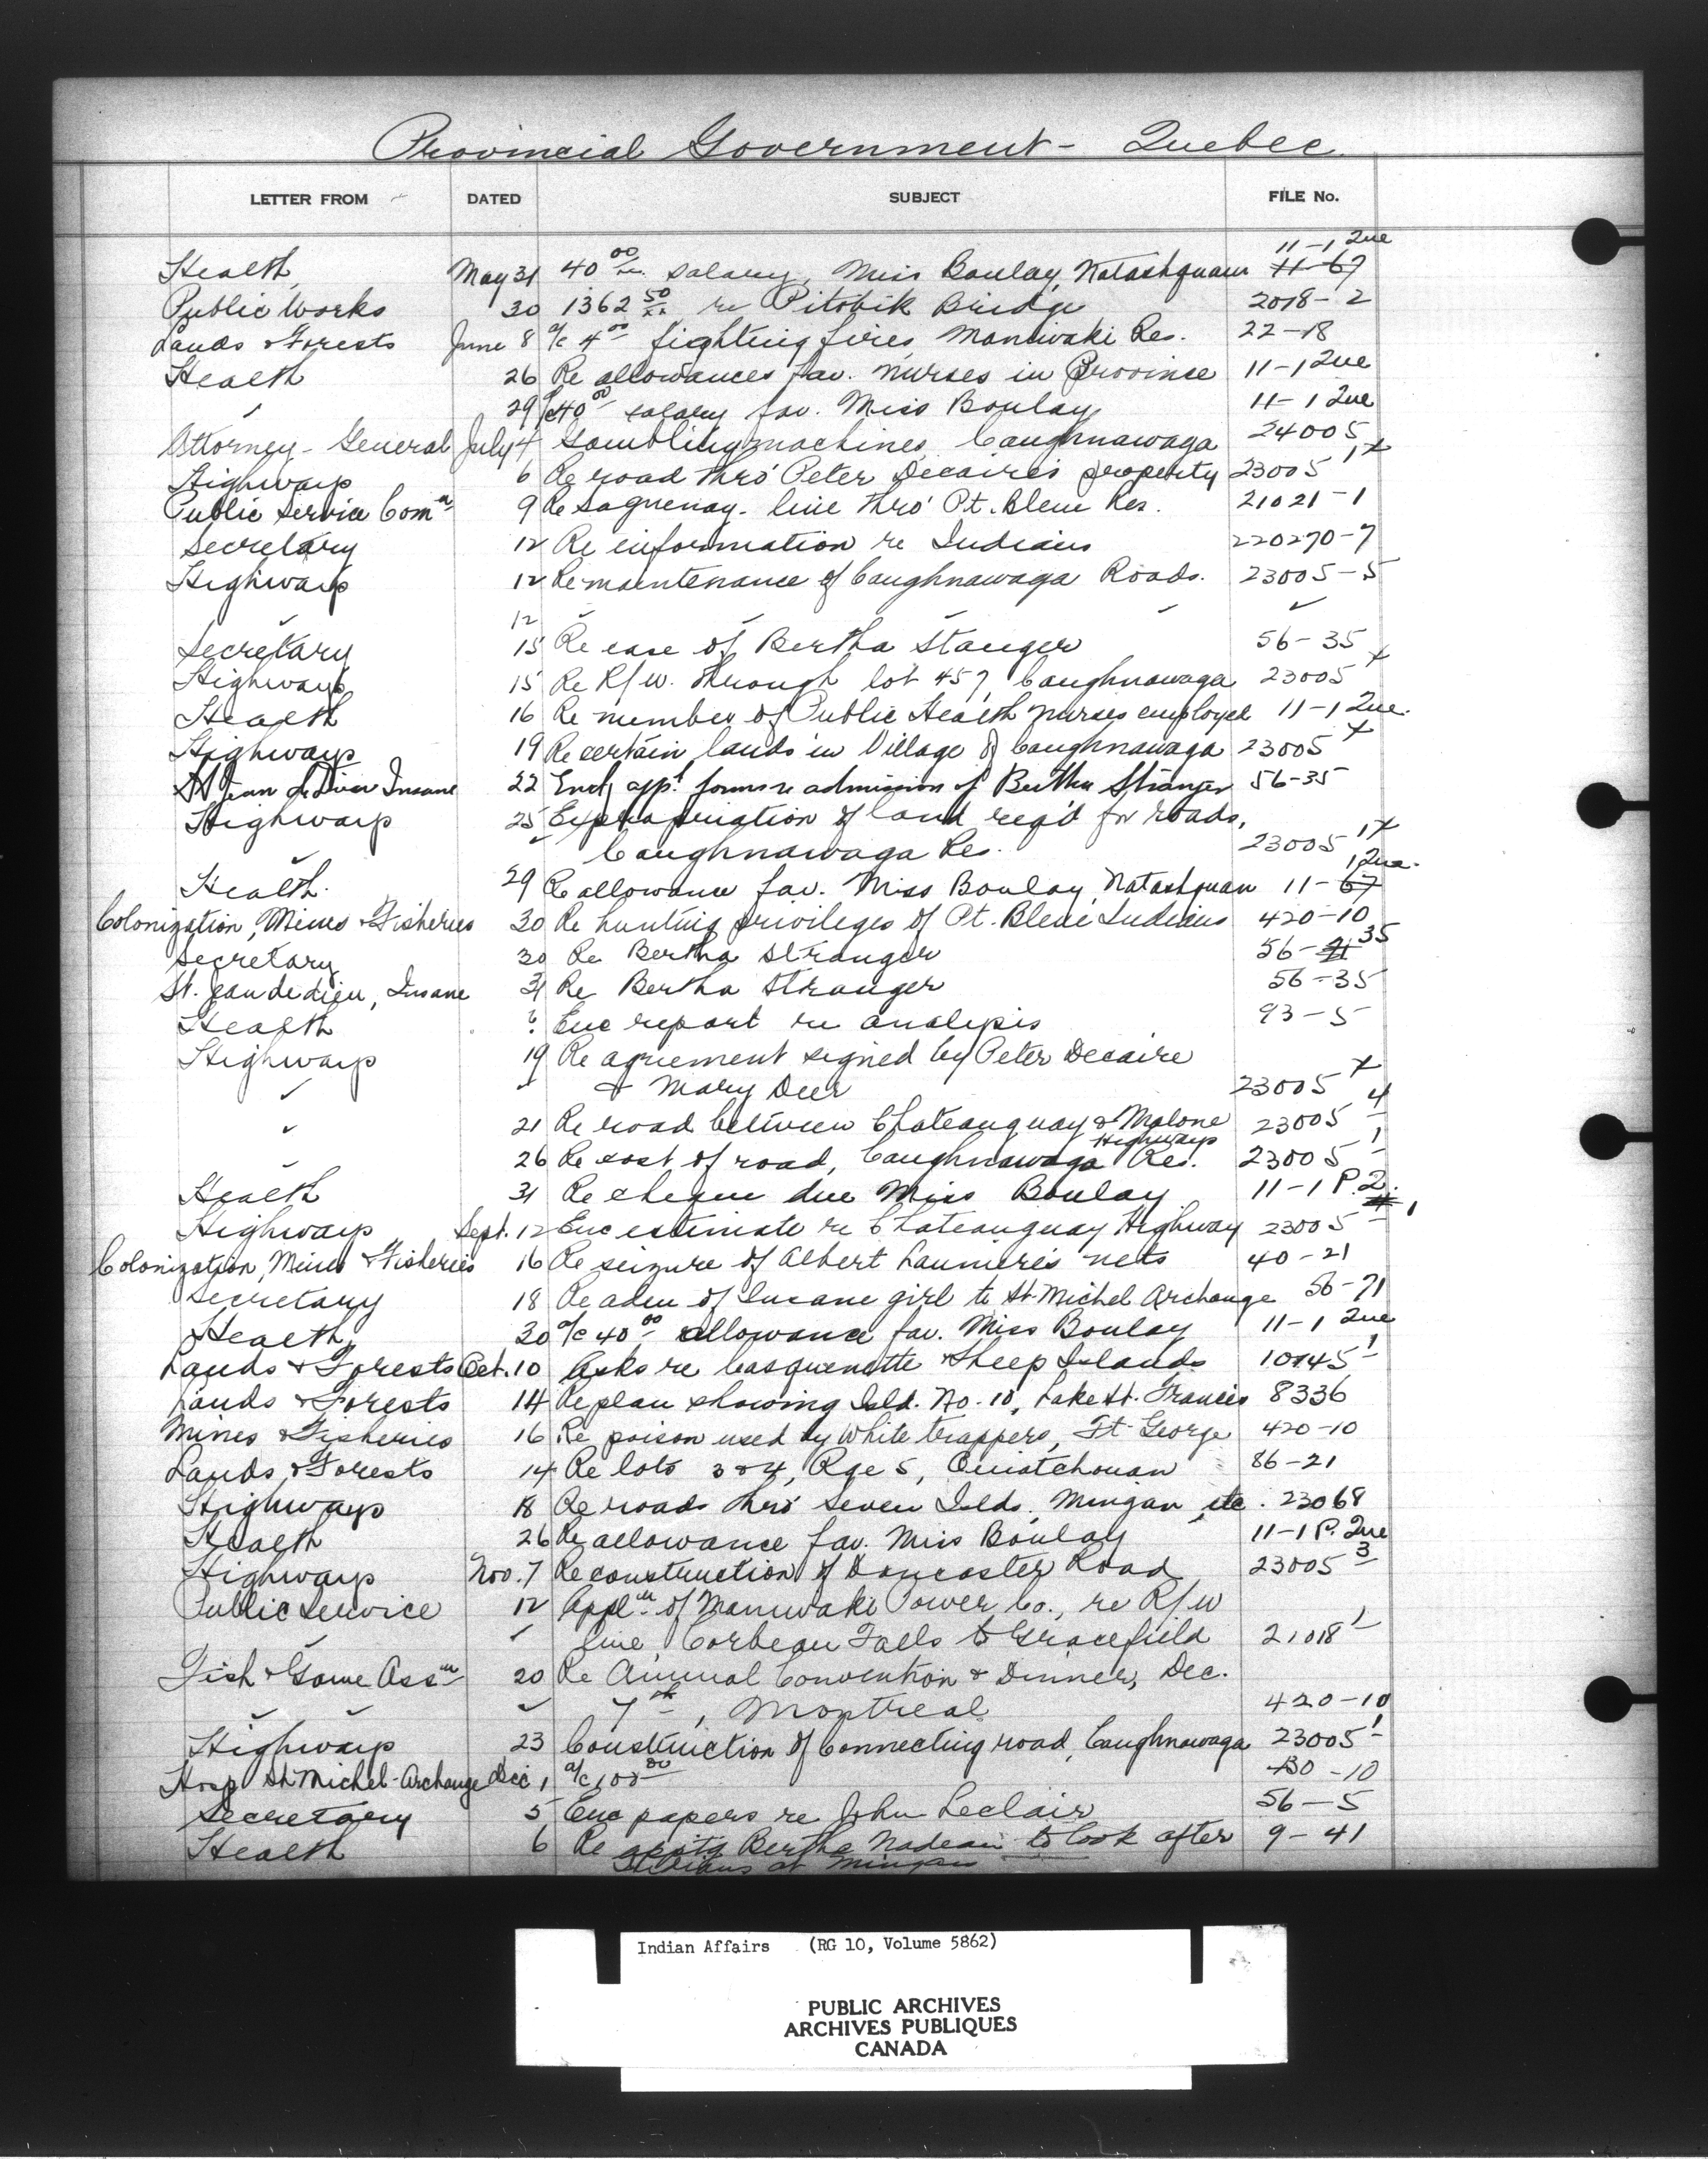 Provincial Government - Quebec.
LETTER FROM DATED SUBJECT FILE No.
Health May 31 40 00 salary, Miss Boulay, Natashquan 11-67 11-1 Que
Public Works 30 1362 50 re Pitobik Bridge 2018-2
Lands & Forests June 8 a/c 4 00 fighting fires Maniwaki Res. 22-18
Health 26 Re allowances fav. nurses in Province 11-1 Que
" 29 a/c 40 00 salary fav. Miss Boulay 11-1 Que
Attorney-General July 4 Gambling machines, Caughnawaga 24005
Highways 6 Re road thro' Peter Decaire's property 23005 1x
Public Service Comn 9 Re Saguenay line thro' Pt. Bleue Res. 21021-1
Secretary 12 Re information re Indians 220270-7
Highways 12 Re maintenance of Caughnawaga Roads. 23005-5
" 12 " " "
Secretary 15 Re case of Bertha Stanger 56-35
Highways 15 Re R/W. through lot 457, Caughnawaga 23005 x
Health 16 Re number of Public Health nurses employed 11-1 Que.
Highways 19 Re certain lands in Village of Caughnawaga 23005 x
St Jean de Dieu Insane 22 Encl. app. forms re admission of Bertha Stranger 56-35
Highways 25 Expropriation of land reqd for roads,
" " Caughnawaga Res. 23005 1x
Health 29 Re allowance fav. Miss Boulay, Natashquan 11-67 1 Que.
Colonization, Mines & Fisheries 30 Re hunting privileges of Pt. Bleue Indians 420-10
Secretary 30 Re Bertha Stranger 56-35
St. Jean de dieu, Insane 31 Re Bertha Stranger 56-35
Health ? Enc report re analysis 93-5
Highways 19 Re agreement signed by Peter Decaire
" " & Mary Deer 23005 x
" 21 Re road between Chateauguay & Malone Highways 23005 4
" 26 Re cost of road, Caughnawaga Res. 23005 1
Health 31 Re cheque due Miss Boulay 11-1 P.Q.
Highways Sept. 12 Enc estimate re Chateauguay Highway 23005 1
Colonization, Mines & Fisheries 16 Re seizure of Albert Laumere's nets 40-21
Secretary 18 Re adm of Insane girl to St-Michel Archange 56-71
Health 30 a/c 40 00 allowance fav. Miss Boulay 11-1 Que
Lands & Forests Oct. 10 Asks re Casquenette & Sheep Islands 10145 1
Lands & Forests 14 Re plan showing Isld. No. 10, Lake St. Francis 8336
Mines & Fisheries 16 Re poison used by White trappers, Ft George 420-10
Lands & Forests 14 Re lots 3 & 4, Rge 5, Ouiatchouan 86-21
Highways 18 Re roads thro' Seven Islds, Mingan, etc. 23068
Health 26 Re allowance fav. Miss Boulay 11-1 P. Que
Highways Nov. 7 Re construction of Doncaster Road 23005 3
Public Service 12 Appln of Maniwaki Power Co., re R/W
" " line Corbeau Falls to Gracefield 21018 1
Fish & Game Assn 20 Re Annual Convention & Dinner, Dec.
" " " 7th, Montreal 420-10
Highways 23 Construction of Connecting road, Caughnawaga 23005 1
Hosp St Michel-Archange Dec 1 a/c 100 00 130-10
Secretary 5 Enc papers re John Leclair 56-5
Health 6 Re apptg Bertha Nadeau to look after 9-41
Indians at Mingan
Indian Affairs (RG 10, Volume 5862)
PUBLIC ARCHIVES
ARCHIVES PUBLIQUES
CANADA